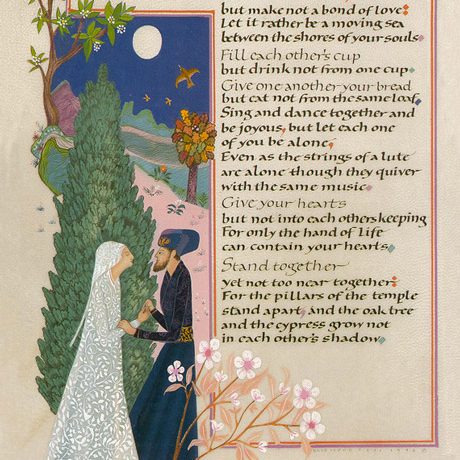 but make not a bond of love:
Let it rather be a moving sea
between the shores of your souls.
Fill each other's cup
but drink not from one cup.
Give one another your bread
but eat not from the same loaf.
Sing and dance together and
be joyous, but let each one
of you be alone,
Even as the strings of a lute
are alone though they quiver
with the same music.
Give your hearts
but not into each others keeping
For only the hand of life
can contain your hearts.
Stand together
yet not too near together:
For the pillars of the temple
stand apart, and the oak tree
and the cypress grow not
in each other's shadow.